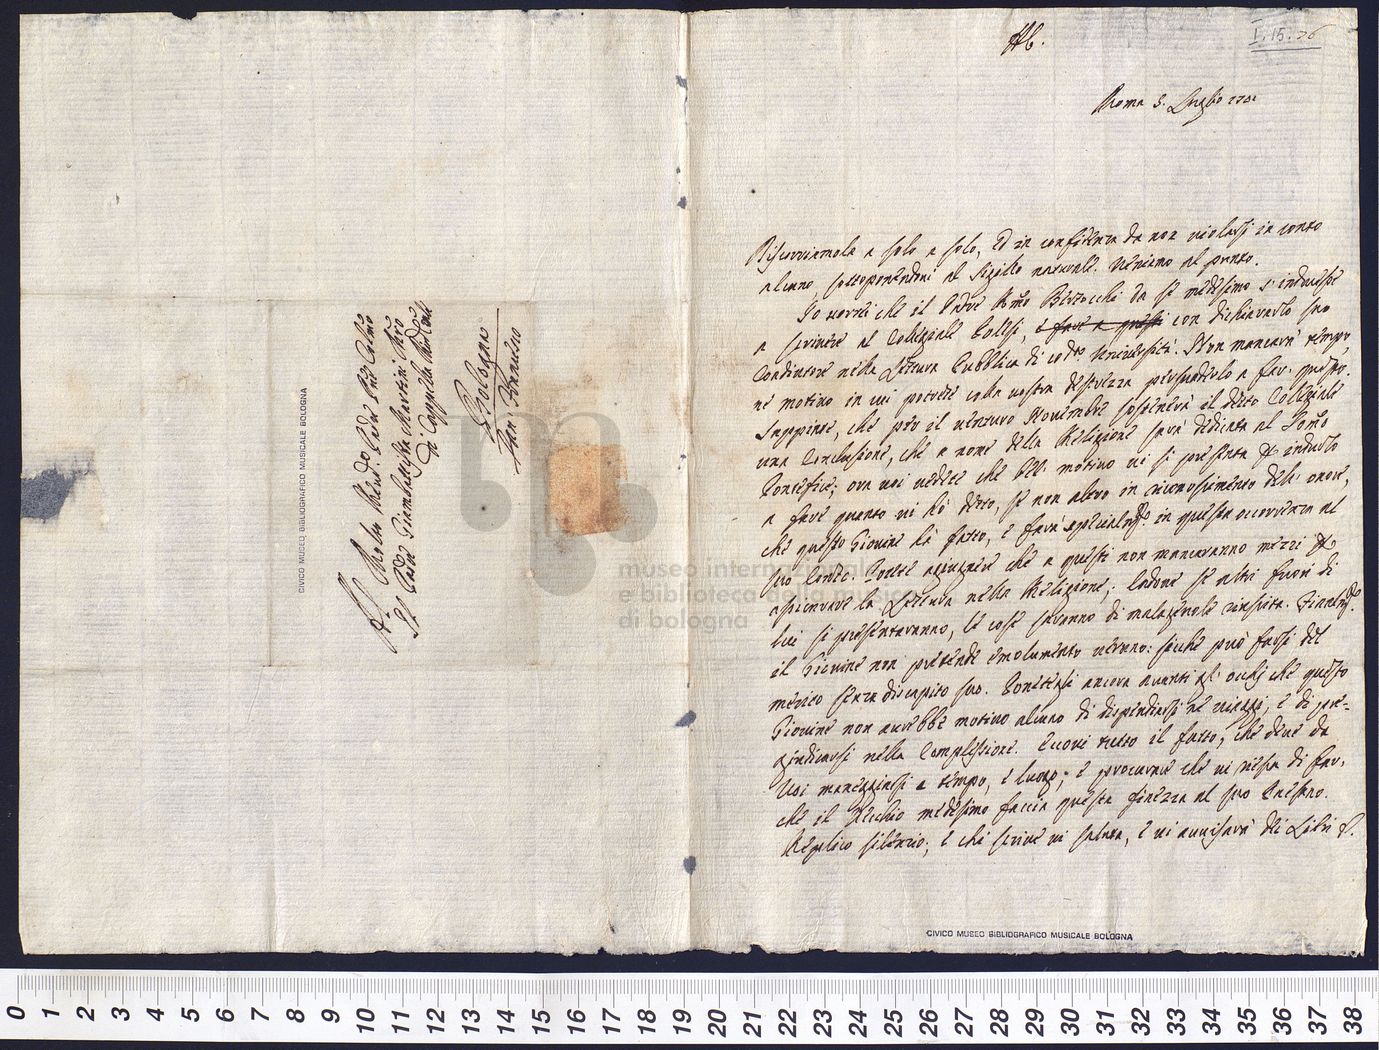 I.15.26
Roma 5. Luglio 1741
Discorriamola a solo a solo, ed in confidenza da non violarsi in conto
alcuno, sottoponendoci al sigillo naturale. Veniamo al punto.
Io vorrei che il Padre Bertocchi da se medesimo s'inducesse
a scrivere al Collegiale Collesi, e fare a questi con dichiararlo suo
Coadiutore nella Lettura Pubblica di cod.ta Università. Non mancarà tempo
nè motivo in cui potrete colla vostra destrezza persuaderlo a far questo.
Sappiate, che per il venturo Novembre sostenerà il detto Collegiale
una Conclusione, che a nome della Religione sarà dedicata al Sommo
Pontefice; ora voi vedete che bel motivo vi si presenta per indurlo
a fare quanto vi hò detto, se non altro in riconoscimento dell' onore,
che questo Giovine hà fatto, e farà specialm.te in questa occorrenza al
suo Conte. Potete aggiugnere che a questi non mancaranno mezzi per
assicurare la Lettura nella Religione; laddove se altri fuori di
lui si presentaranno, le cose saranno di malagevole riuscita. Finalm.te
il Giovine non pretende emolumento veruno: sicchè può farsi del
merito senza discapito suo. Ponetegli ancora avanti gl' occhj che questo
Giovine non avrebbe motivo alcuno di dispendiarsi ne' viaggi, e di pre=
giudicarsi nella Complessione. Eccovi tutto il fatto, che deve da
Voi maneggiarsi a tempo, e luogo; e procurare che vi riesca di far,
che il Vecchio medesimo faccia questa finezza al suo Paesano.
Replico silenzio; e chi scrive vi saluta, e vi avvisarà dei Libri
Al Molto Rev.do Padre P.ne Col.mo
Il Padre Giambattista Martini M.ro
di Cappella Min. Con.le
Bologna
San Francesco
CIVICO MUSEO BIBLIOGRAFICO MUSICALE BOLOGNA
CIVICO MUSEO BIBLIOGRAFICO MUSICALE BOLOGNA
museo internazionale
e biblioteca della musica
di bologna
0 1 2 3 4 5 6 7 8 9 10 11 12 13 14 15 16 17 18 19 20 21 22 23 24 25 26 27 28 29 30 31 32 33 34 35 36 37 38